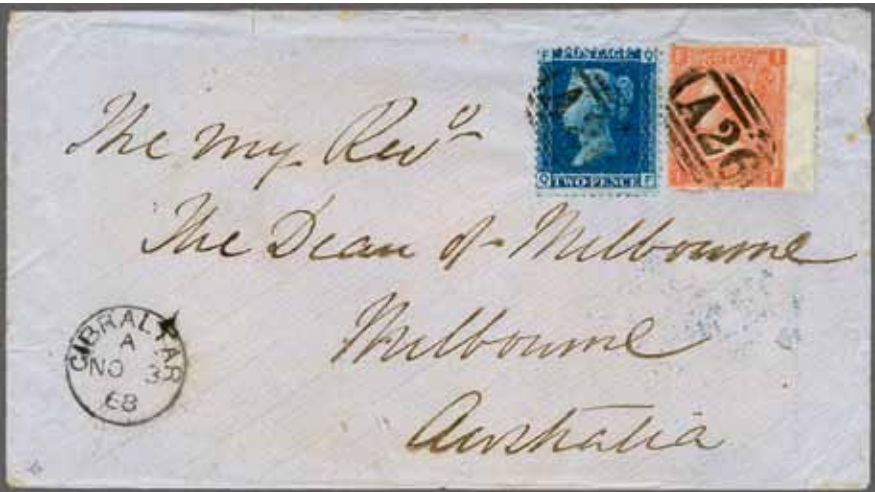 F POSTAGE Q
Q TWO PENCE F
F POSTAGE I
I F
A26
The Very Revd
The Dean of Melbourne
Melbourne
Australia
GIBRALTAR
A
NO 3
68